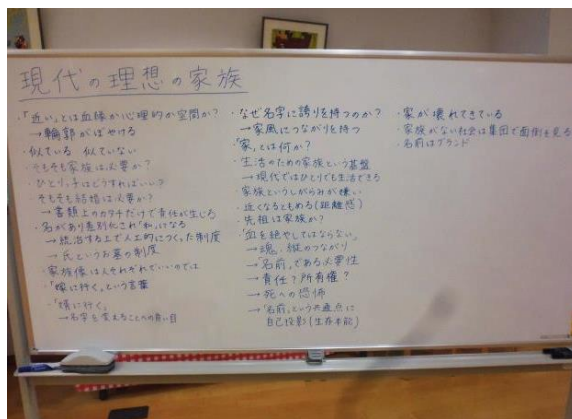 現代の理想の家族
・「近い」とは血縁か心理的か空間か?
→輪郭がぼやける
・似ている 似ていない
・そもそも家族は必要か?
・ひとりっ子はどうすればいい?
・そもそも結婚は必要か?
→書類上のカタチだけで責任が生じる
・名があり差別化され「私」になる
→統治する上で人工的につくった制度
→氏というお墓の制度
・家族像は人それぞれでいいのでは
・「嫁に行く」という言葉
・「婿に行く」
→名字を変えることへの負い目
・なぜ名字に誇りを持つのか?
→家風につながりを持つ
・「家」とは何か?
・生活のための家族という基盤
→現代ではひとりでも生活できる
・家族というしがらみが嫌い
・近くなるともめる(距離感)
・先祖は家族か?
・「血を絶やしてはならない」
→魂、縦のつながり
→「名前」である必要性
→責任?所有権?
→死への恐怖
→「名前」という共通点に
自己投影(生存本能)
・家が壊れてきている
・家族がない社会は集団で面倒を見る
・名前はブランド